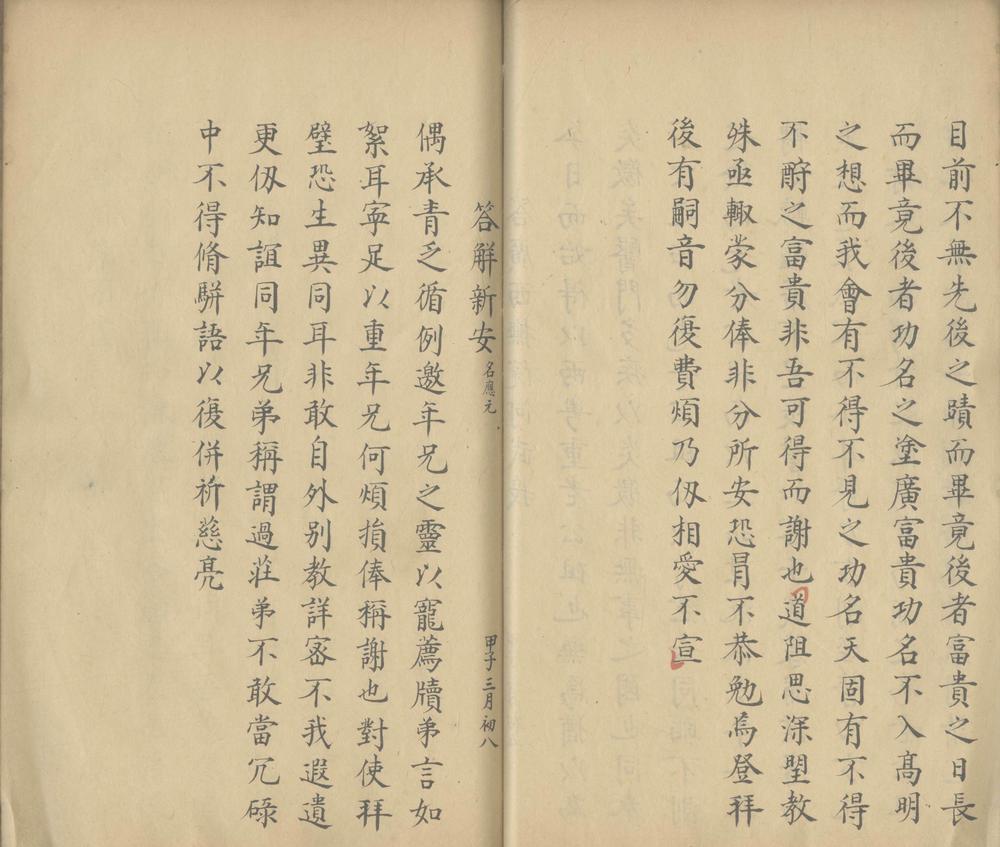 目前不無先後之蹟而畢竟後者富貴之日長
而畢竟後者功名之塗廣富貴功名不入髙明
之想而我會有不得不見之功名天固有不得
不酹之富貴非吾可得而諱也道阻思深朢教
殊亟輙蒙分俸非分所安恐冐不恭勉爲登拜
後有嗣音勿復費煩乃伋相愛不宣
答解新安名應元 甲子三月初八
偶承青乏循例邀年兄之靈以寵薦牘弟言如
絮耳寜足以重年兄何煩損俸稱謝也對使拜
璧恐生異同耳非敢自外别教詳宻不我遐遺
更伋知誼同年兄弟稱謂過莊弟不敢當冗碌
中不得脩駢語以復併祈慈亮